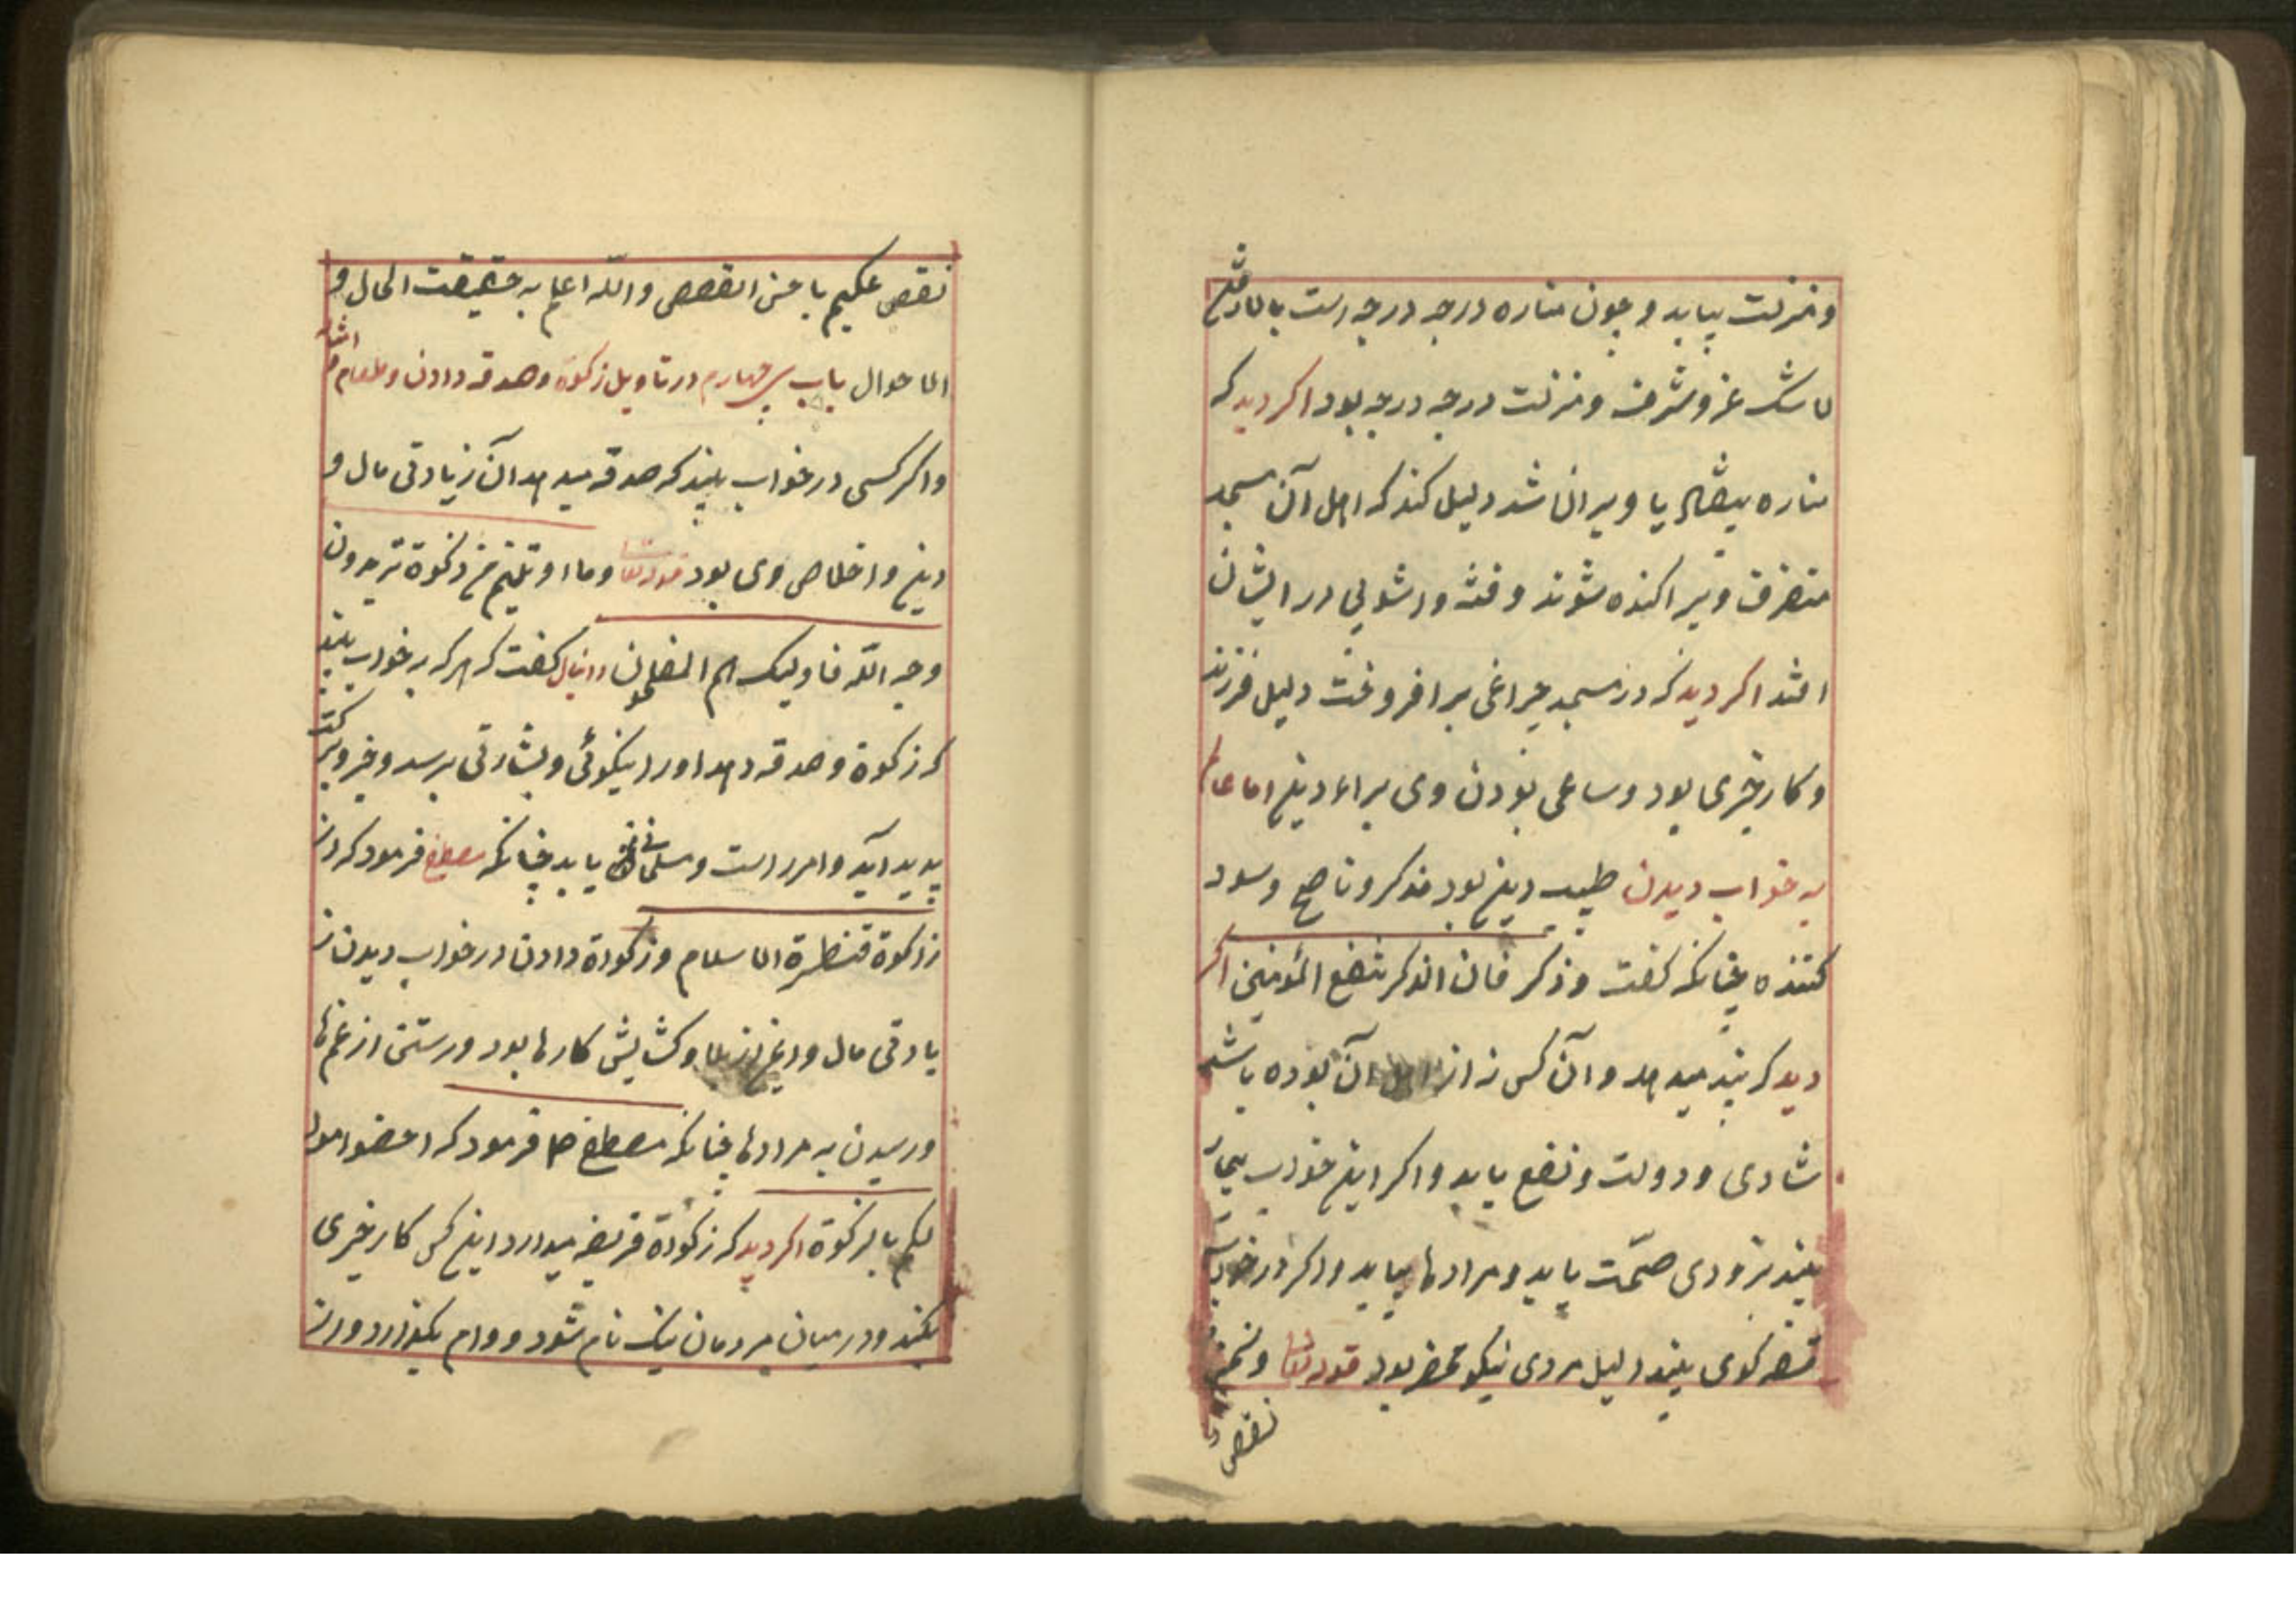 ومنزلت بیابد و چون مناره درجه درجه است بالا رفتن
لاشک عز و شرف و منزلت درجه درجه بود اکر دید که
مناره بیفتاد یا ویران شد دلیل کند که اهل آن مسجد
متفرق و پیراکنده شوند و فتنه و اشوبی در ایشان
افتد اکر دید که در مسجد چراغی برافروخت دلیل فرزند
و کار خیری بود و ساعی بودن وی براء دین اما عالم
به خواب دیدن طبیب دین بود مذکر و ناصح و سود
کننده چنانکه کفت وذکر فان الذکر تنفع المؤمنین اکر
دید که پند میدهد و آن کس نه از اهل آن بوده باشد
شادی و دولت و نفع یابد و اکر این خواب بیمار
بیند بزودی صحّت یابد و مرادها بیابد و اکر در خواب
قصه کوی بیند دلیل مردی نیکو محضر بود قوله تعا ونحن
نقص
نقص علیکم باحسن القصص والله اعلم به حقیقت الحال و
الاحوال باب سی چهارم در تاویل زکوة و صدقه دادن و طعام
و اکر کسی در خواب بیند که صدقه میدهد آن زیادتی مال و
دین و اخلاص وی بود قوله تعا وما اوتیتم من زکوة تریدون
وجه الله فاولیک هم المضعفون دانیال کفت که هر که به خواب بیند
که زکوة و صدقه دهد اورا نیکوئی و بشارتی برسد و خیر و برکت
پدید آید و امر راست و مسلمانی یابد چنانکه مصطفی فرمود که
زذکوة قنطرة الاسلام و زکوة دادن در خواب دیدن ز
یادتی مال و دین و کشایش کارها بود و رستن از غم ها
و رسیدن به مرادها چنانکه مصطفی صا فرمود که احضوا موا
لکم بالزکوة اکر دید که زکوة فریضه میدارد این کس کار خیری
بکند و در میان مردمان نیک نام شود و وام بکذارد و